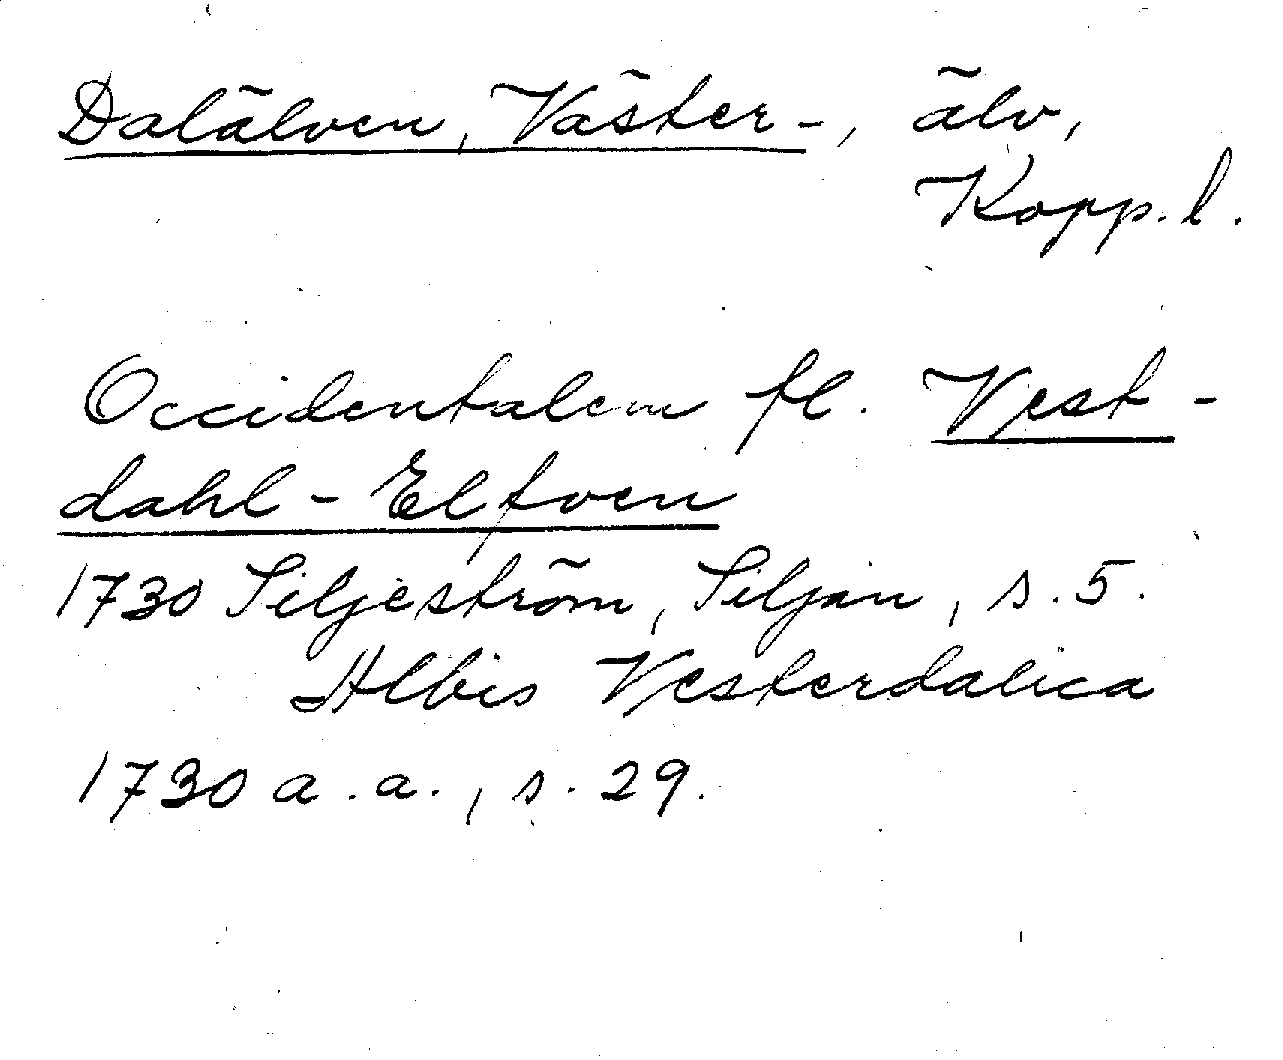 Dalälven, Väster-, älv,
Kopp. l.
Occidentalem fl. Vest-
dahl-Elfven
1730 Siljeström, Siljan, s. 5.
Albis Vesterdalica
1730 a.a., s. 29.